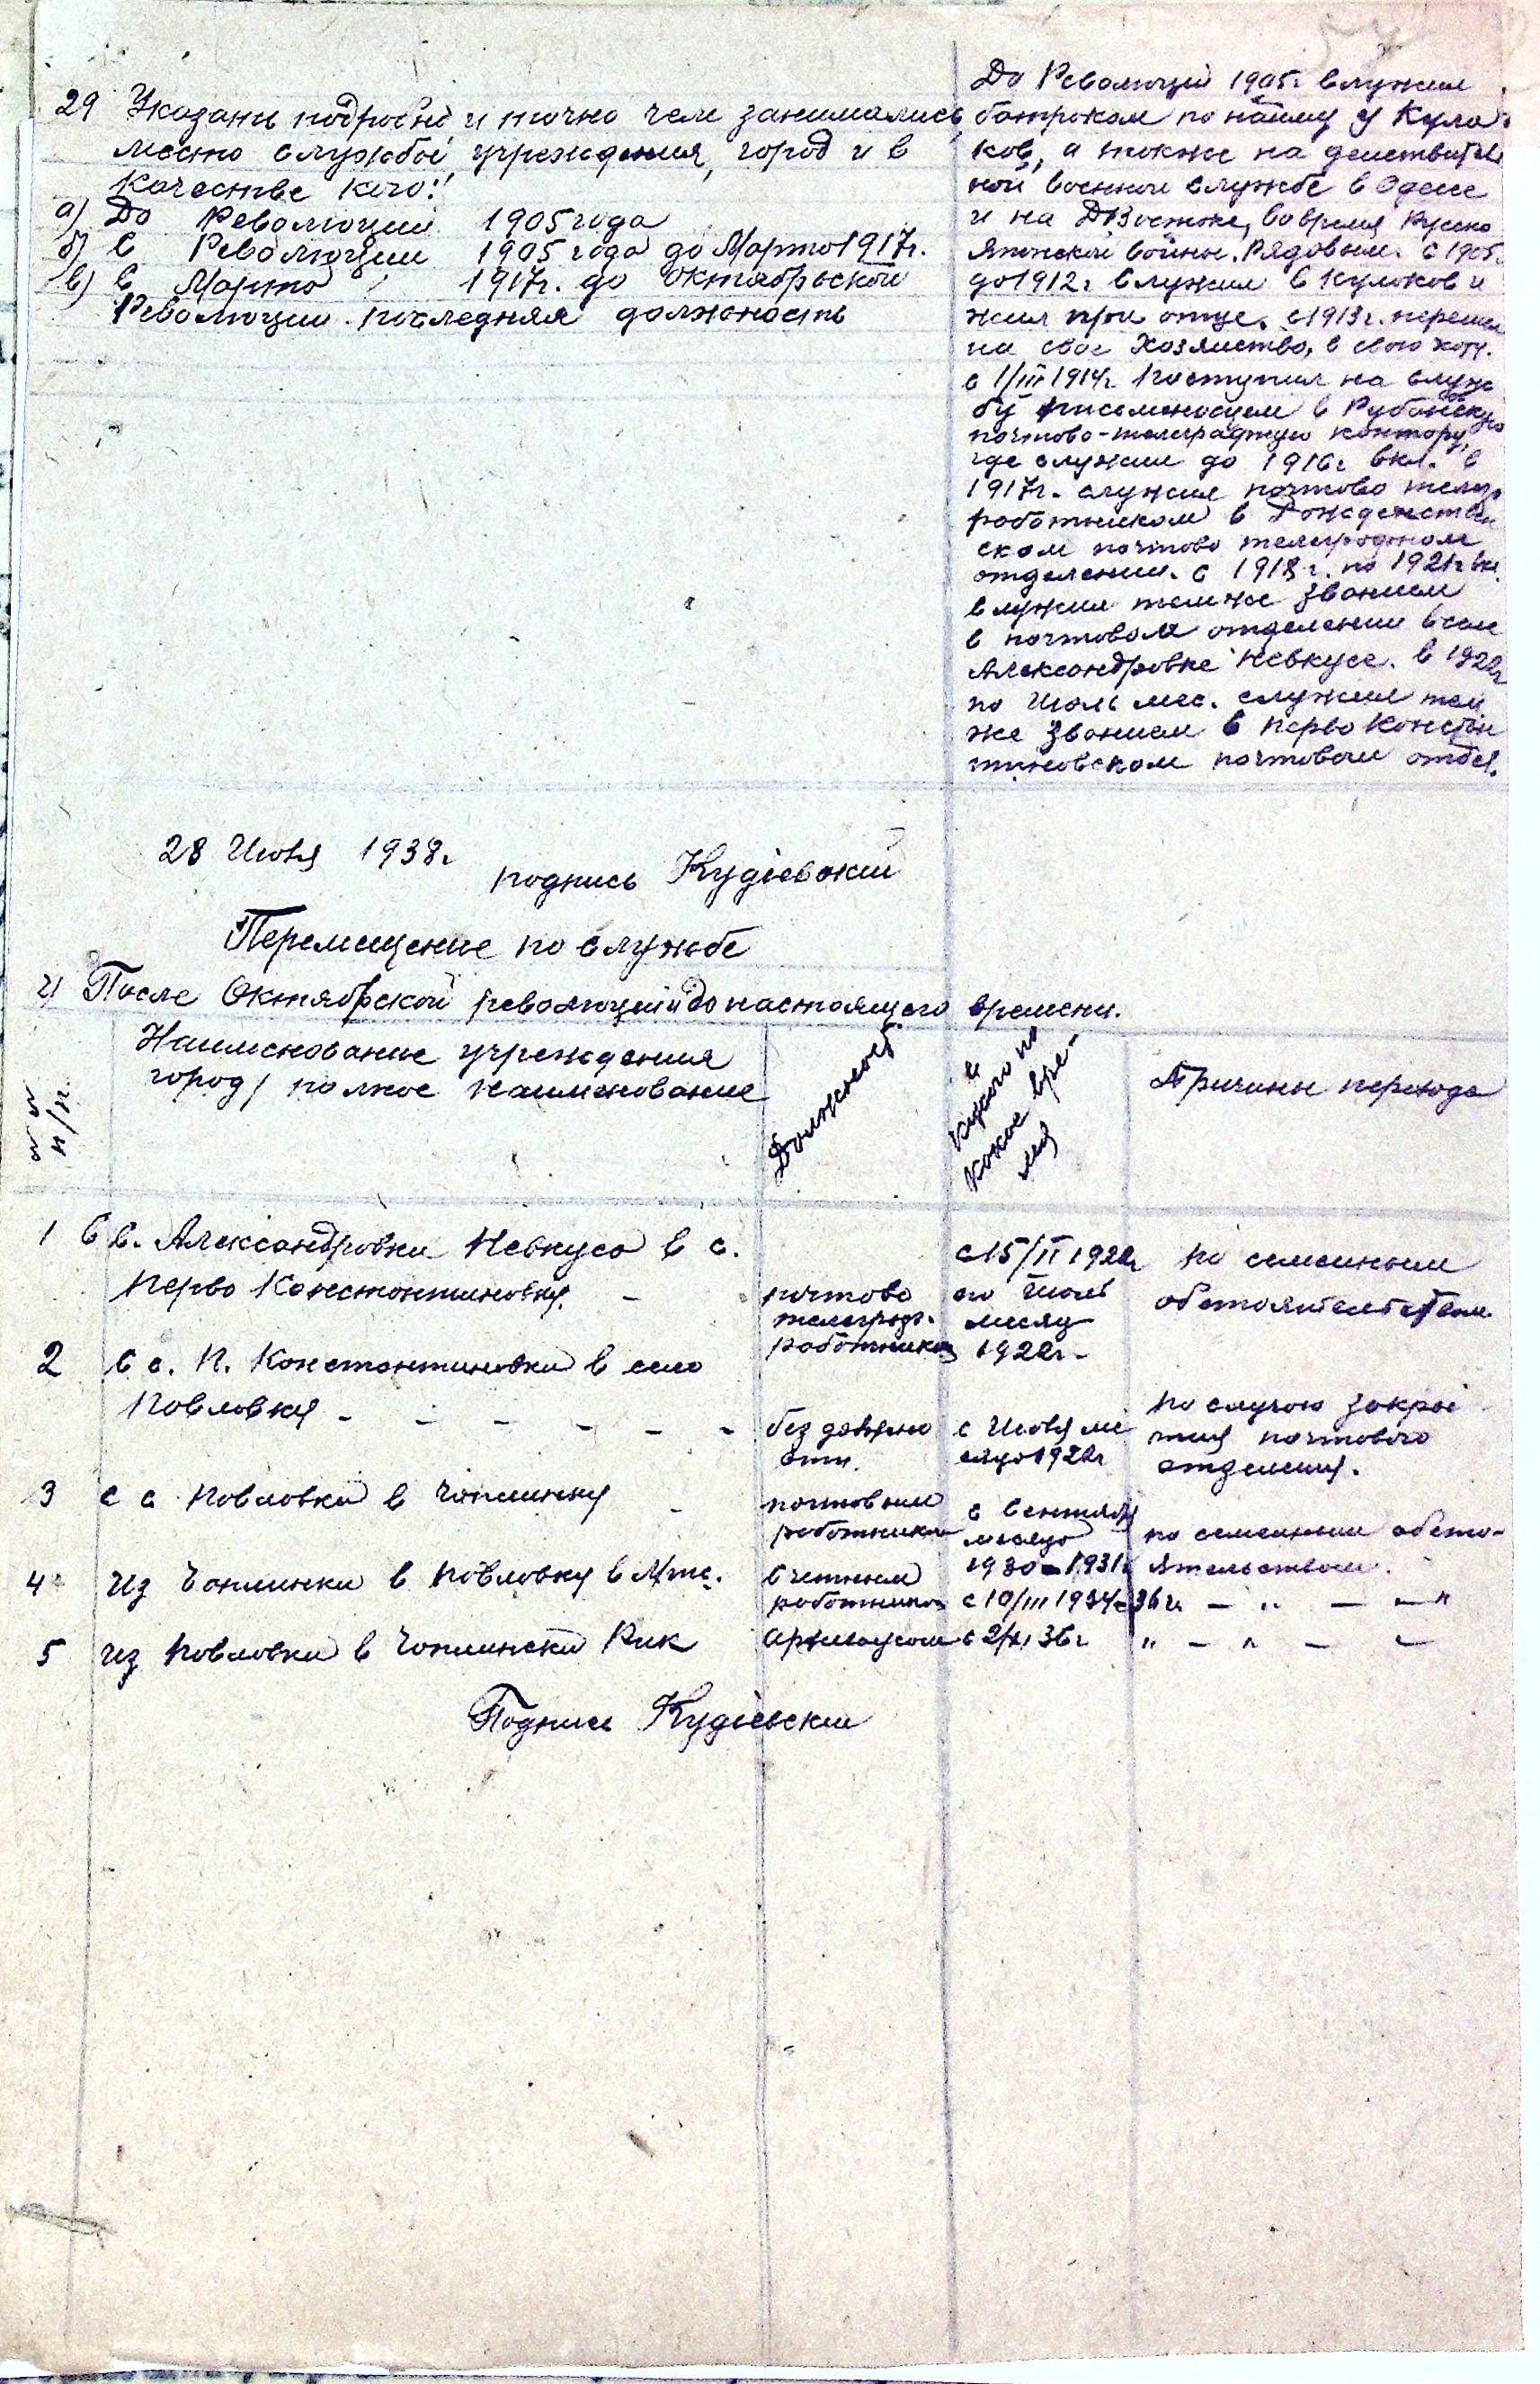 29 Указать подробно и точно чем занимались,
место службы, учреждения, город и в
качестве кого:!
а) До Революции 1905 года
б) С Революции 1905 года до Марта 1917г.
в) С Марта 1917г. до Октябрьской
Революции последняя должность
До Революции 1905г служил
батраком по найму у Кула
ков, а также на действитель
ной военной службе в Одессе
и на Д Востоке, во время Русско
Японской войны. Рядовым. С 1905г
до 1912г служил в кулаков и
жил при отце. с 1913г. перешел
на свое хозяйство, в свою хату.
с 1/III 1914г поступил на служ
бу письменосцем в
почтово-телеграфную контору,
где служил до 1916г вкл. в
1917г. служил почтово телегр
работником в Рождествен
ском почтово телеграфном
отделении. с 1918г. по 1921г вкл.
служил тем же званием
в почтовом отделении в селе
Александровке Невкуса. в 1922г
по Июль мес. служил тем
же званием в Перво Констан
тиновском почтовом отдел.
28 Июля 1938г
подпись Кудіевский
Перемещение по службе
г) После Октябрской революции и до настоящего времени.
№ № п/п
Наименование учреждения
город, полное наименование
Должност
с какого по какое вре-мя
Причины перехода
1 С с. Александровки Невкуса в с.
Перво Константиновку. -
почтово
телеграф.
работником
с 15/II 1922г
по Июль
месяц
1922г-
по семейным
обстоятельствам
2 С с. П. Константиновки в село
Павловку - - - - - -
без должно
сти.
с Июля ме
сяца 1922г
по случаю закры
тия почтового
отделения.
3 с с Павловки в Чаплинку -
почтовым
работником
с Сентября
месяца
1930-1931г
по семейным обсто-
ятельствам.
4 Из Чаплинки в Павловку в Мтс.
счетным
работником
с 10/III 1934-36г. - " - - "
5 Из Павловки в Чаплински Рик
Архивариусом с 2/XI 36г " - " - -
Подпись Кудіевский